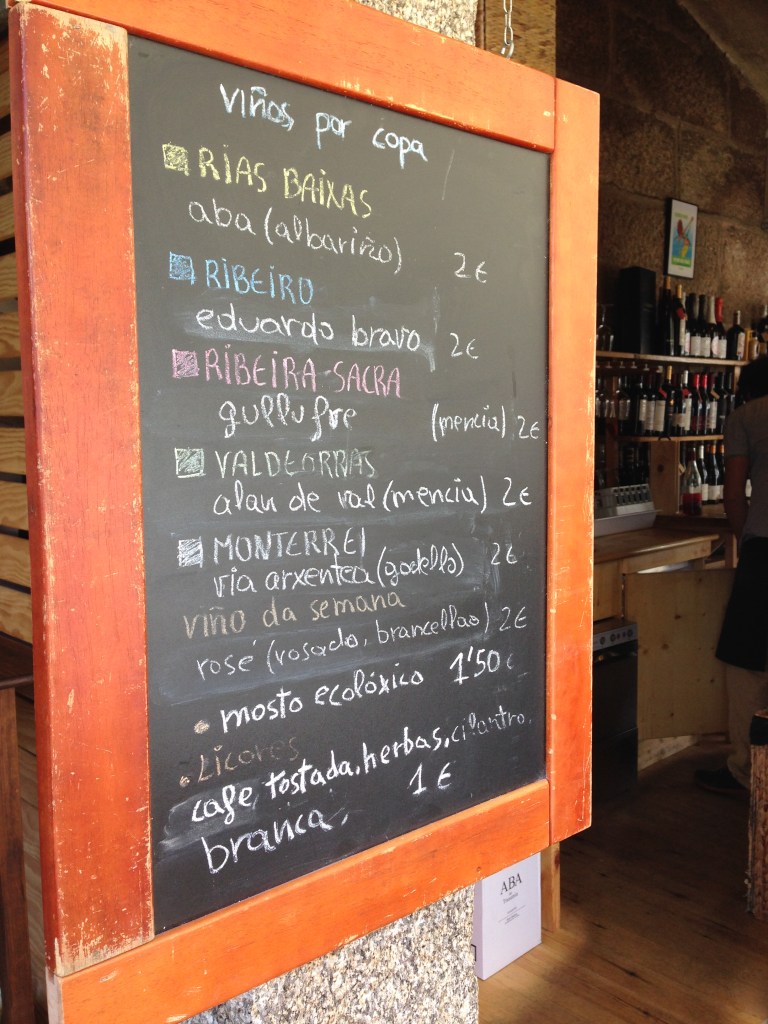 viños por copa
RIAS BAIXAS
aba (albariño) 2€
RIBEIRO
eduardo bravo 2€
RIBEIRA-SACRA
gullufre (mencia) 2€
VALDEORRAS
alan de val (mencia) 2€
MONTERREI
via arxentea (godello) 2€
viño da semana
rosé (rosado, brancellao) 2€
• mosto ecolóxico 1'50 €
• Licores
cafe tostada, herbas, cilantro,
branca, 1 €
ABA